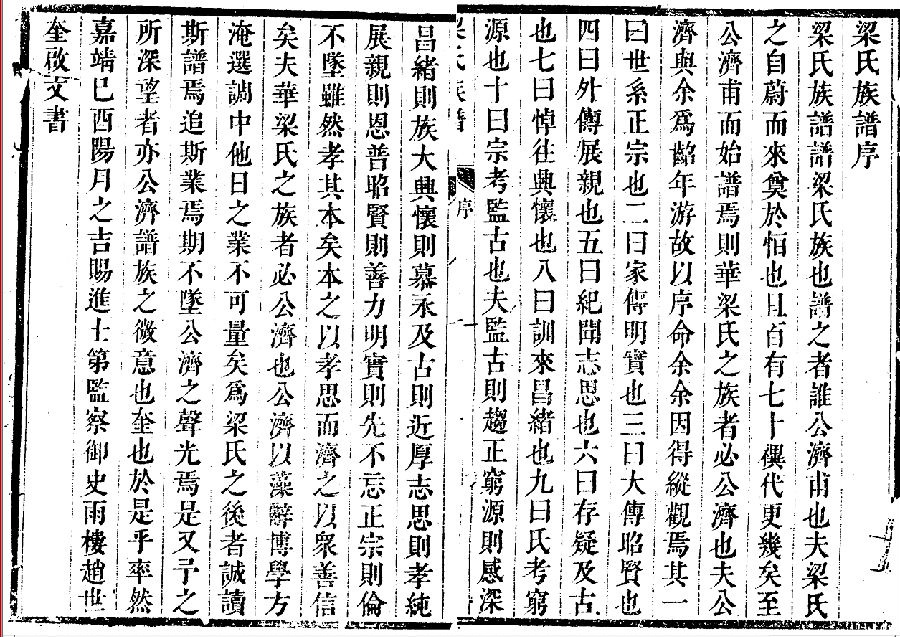 梁氏族譜序
梁氏族譜譜梁氏族也譜之者誰公濟甫也夫梁氏
之自蔚而來奠於恒也且百有七十禩代更幾矣至
公濟甫而始譜焉則華梁氏之族者必公濟也夫公
濟與余爲髫年游故以序命余余因得縱觀焉其一
曰世系正宗也二曰家傳明實也三曰大傳昭賢也
四曰外傳展親也五曰紀聞志思也六曰存疑及古
也七曰悼往興懷也八曰訓來昌緒也九曰氏考窮
源也十曰宗考監古也夫監古則趨正窮源則感深
梁氏族譜
序
昌緒則族大興懷則慕永及古則近厚志思則孝純
展親則恩普昭賢則善力明實則先不忘正宗則倫
不墜雖然孝其本矣本之以孝思而濟之以衆善信
矣夫華梁氏之族者必公濟也公濟以藻辭博學方
淹選調中他日之業不可量矣爲梁氏之後者誠讀
斯譜焉追斯業焉期不墜公濟之聲光焉是又予之
所深望者亦公濟譜族之微意也奎也於是乎率然
嘉靖巳酉陽月之吉賜進士第監察御史雨樓趙世
奎啟文書